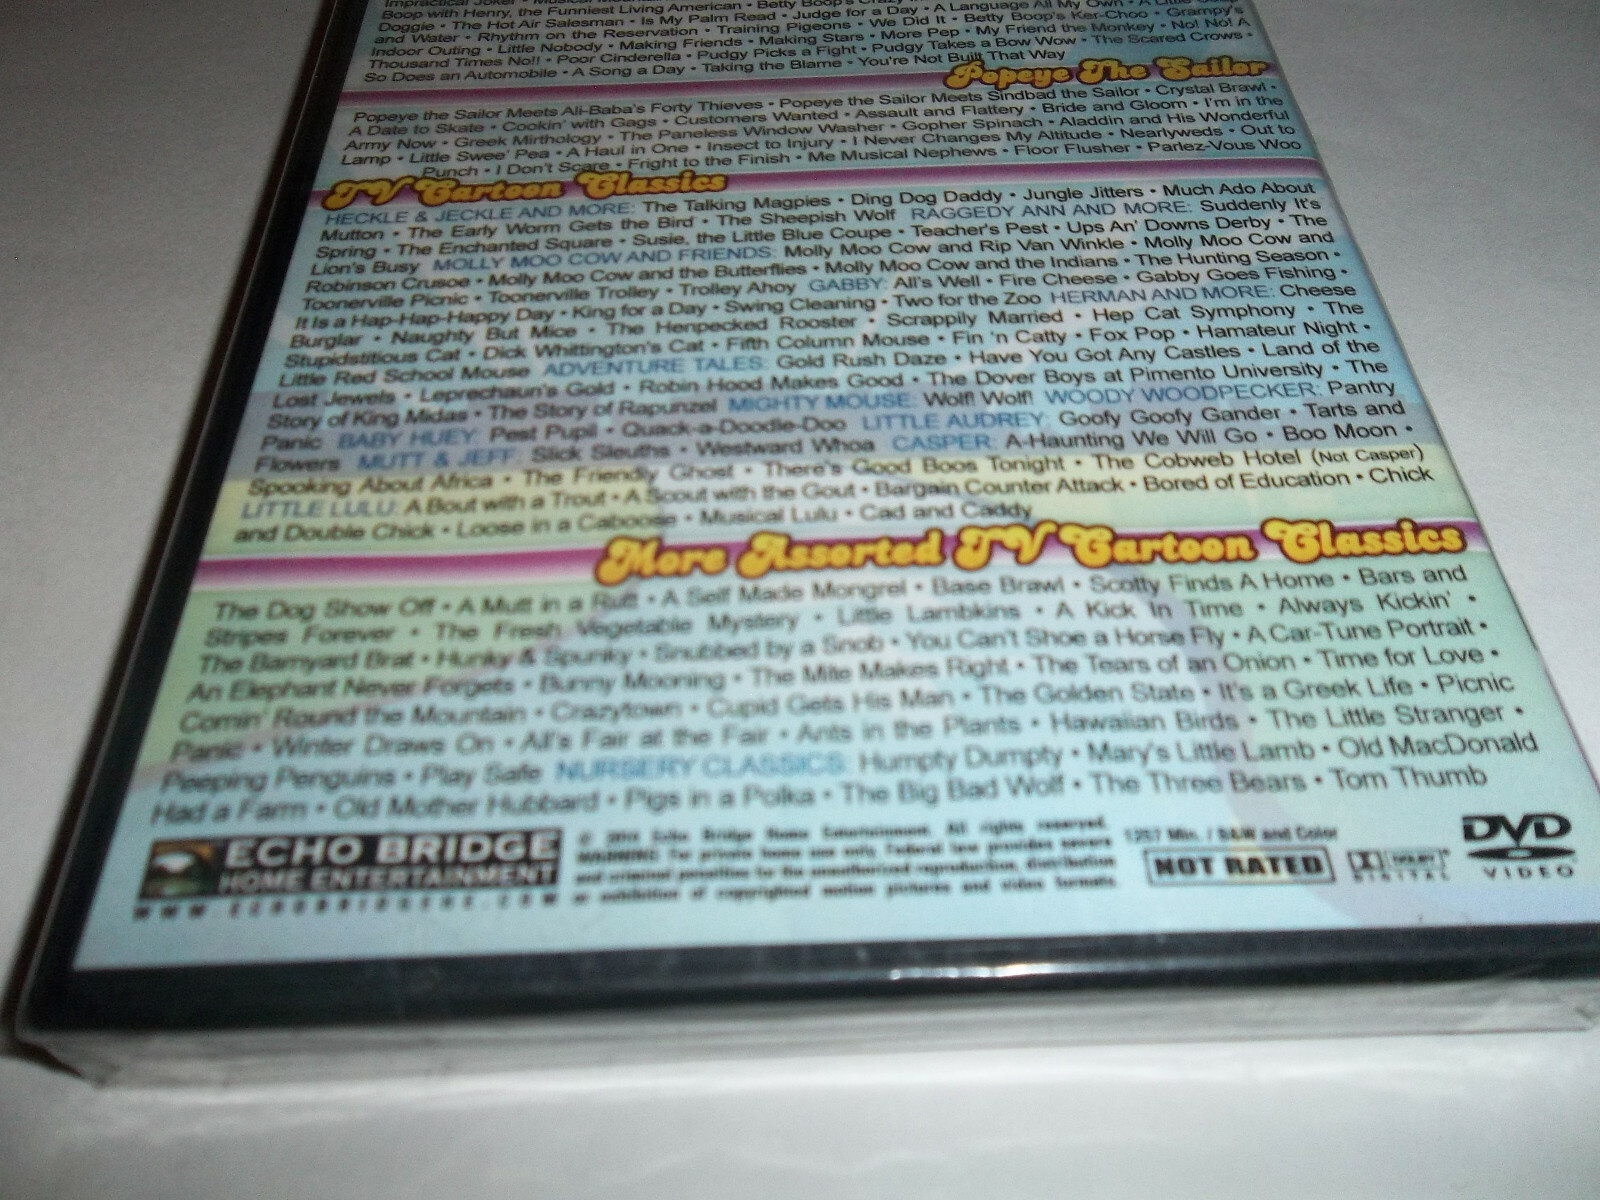 Impractical Joker • Musical Mountain
Boop with Henry, the Funniest Living American • Betty Boop's Crazy
Doggie • The Hot Air Salesman • Is My Palm Read • Judge for a Day • A Language All My Own • A Little Soap
and Water • Rhythm on the Reservation • Training Pigeons • We Did It • Betty Boop's Ker-Choo • Grampy's
Indoor Outing • Little Nobody • Making Friends • Making Stars • More Pep • My Friend the Monkey • No! No! A
Thousand Times No!! • Poor Cinderella • Pudgy Picks a Fight • Pudgy Takes a Bow Wow • The Scared Crows •
So Does an Automobile • A Song a Day • Taking the Blame • You're Not Built That Way
Popeye The Sailor
Popeye the Sailor Meets Ali-Baba's Forty Thieves • Popeye the Sailor Meets Sindbad the Sailor • Crystal Brawl •
A Date to Skate • Cookin' with Gags • Customers Wanted • Assault and Flattery • Bride and Gloom • I'm in the
Army Now • Greek Mirthology • The Paneless Window Washer • Gopher Spinach • Aladdin and His Wonderful
Lamp • Little Swee' Pea • A Haul in One • Insect to Injury • I Never Changes My Altitude • Nearlyweds • Out to
Punch • I Don't Scare • Fright to the Finish • Me Musical Nephews • Floor Flusher • Parlez-Vous Woo
TV Cartoon Classics
HECKLE & JECKLE AND MORE: The Talking Magpies • Ding Dog Daddy • Jungle Jitters • Much Ado About
Mutton • The Early Worm Gets the Bird • The Sheepish Wolf RAGGEDY ANN AND MORE: Suddenly It's
Spring • The Enchanted Square • Susie, the Little Blue Coupe • Teacher's Pest • Ups An' Downs Derby • The
Lion's Busy MOLLY MOO COW AND FRIENDS: Molly Moo Cow and Rip Van Winkle • Molly Moo Cow and
Robinson Crusoe • Molly Moo Cow and the Butterflies • Molly Moo Cow and the Indians • The Hunting Season •
Toonerville Picnic • Toonerville Trolley • Trolley Ahoy GABBY: All's Well • Fire Cheese • Gabby Goes Fishing •
It Is a Hap-Hap-Happy Day • King for a Day • Swing Cleaning • Two for the Zoo HERMAN AND MORE: Cheese
Burglar • Naughty But Mice • The Henpecked Rooster • Scrappily Married • Hep Cat Symphony • The
Stupidstitious Cat • Dick Whittington's Cat • Fifth Column Mouse • Fin 'n Catty • Fox Pop • Hamateur Night •
Little Red School Mouse ADVENTURE TALES: Gold Rush Daze • Have You Got Any Castles • Land of the
Lost Jewels • Leprechaun's Gold • Robin Hood Makes Good • The Dover Boys at Pimento University • The
Story of King Midas • The Story of Rapunzel MIGHTY MOUSE: Wolf! Wolf! WOODY WOODPECKER: Pantry
Panic BABY HUEY: Pest Pupil • Quack-a-Doodle-Doo LITTLE AUDREY: Goofy Goofy Gander • Tarts and
Flowers MUTT & JEFF: Slick Sleuths • Westward Whoa CASPER: A-Haunting We Will Go • Boo Moon •
Spooking About Africa • The Friendly Ghost • There's Good Boos Tonight • The Cobweb Hotel (Not Casper)
LITTLE LULU: A Bout with a Trout • A Scout with the Gout • Bargain Counter Attack • Bored of Education • Chick
and Double Chick • Loose in a Caboose • Musical Lulu • Cad and Caddy
More Assorted TV Cartoon Classics
The Dog Show Off • A Mutt in a Rutt • A Self Made Mongrel • Base Brawl • Scotty Finds A Home • Bars and
Stripes Forever • The Fresh Vegetable Mystery • Little Lambkins • A Kick In Time • Always Kickin' •
The Barnyard Brat • Hunky & Spunky • Snubbed by a Snob • You Can't Shoe a Horse Fly • A Car-Tune Portrait •
An Elephant Never Forgets • Bunny Mooning • The Mite Makes Right • The Tears of an Onion • Time for Love •
Comin' Round the Mountain • Crazytown • Cupid Gets His Man • The Golden State • It's a Greek Life • Picnic
Panic • Winter Draws On • All's Fair at the Fair • Ants in the Plants • Hawaiian Birds • The Little Stranger •
Peeping Penguins • Play Safe NURSERY CLASSICS: Humpty Dumpty • Mary's Little Lamb • Old MacDonald
Had a Farm • Old Mother Hubbard • Pigs in a Polka • The Big Bad Wolf • The Three Bears • Tom Thumb
ECHO BRIDGE
HOME ENTERTAINMENT
WWW.ECHOBRIDGEHE.COM
Echo Bridge Home Entertainment. All rights reserved.
WARNING: For private home use only. Federal law provides severe
and criminal penalties for the unauthorized reproduction, distribution
or exhibition of copyrighted motion pictures and video formats.
1257 Min. / B&W and Color
NOT RATED
DIGITAL
DVD
VIDEO